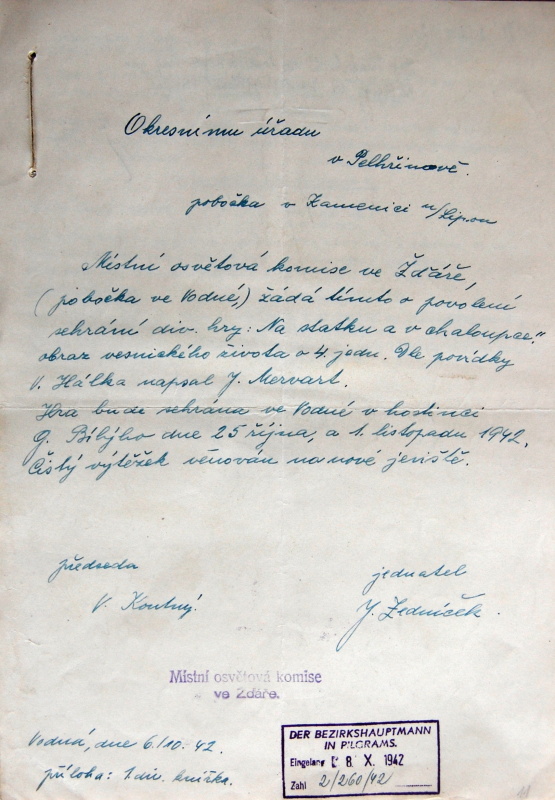 Okresnímu úřadu
v Pelhřimově.
pobočka v Kamenici n/Lipou
Místní osvětová komise ve Žďáře,
(pobočka ve Vodné,) žádá tímto o povolení
sehrání div. hry: Na statku a v chaloupce."
obraz vesnického života o 4. jedn. Dle povídky
V. Hálka napsal J. Mervart.
Hra bude sehrána ve Vodné v hostinci
G. Bílýho dne 25 října, a 1. listopadu 1942.
Čistý výtěžek věnován na nové jeviště.
předseda
jednatel
V. Koutný.
J. Zedníček.
Místní osvětová komise
ve Ždáře.
Vodná, dne 6/10. 42.
příloha: 1 div. knížka.
DER BEZIRKSHAUPTMANN
IN PILGRAMS.
Eingelang 8. X. 1942
Zahl 2/260/42